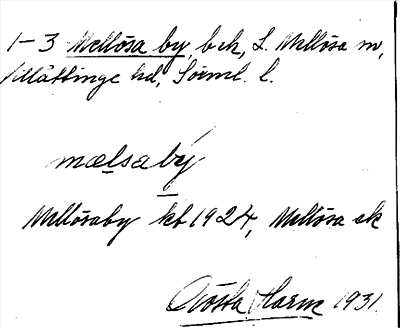 1-3 Mellösa by, beh, L. Mellösa sn,
Villåttinge hd, Sörml. l.
mælsabý
Mellösaby kb 1924, Mellösa sk
Gösta Harm 1931.